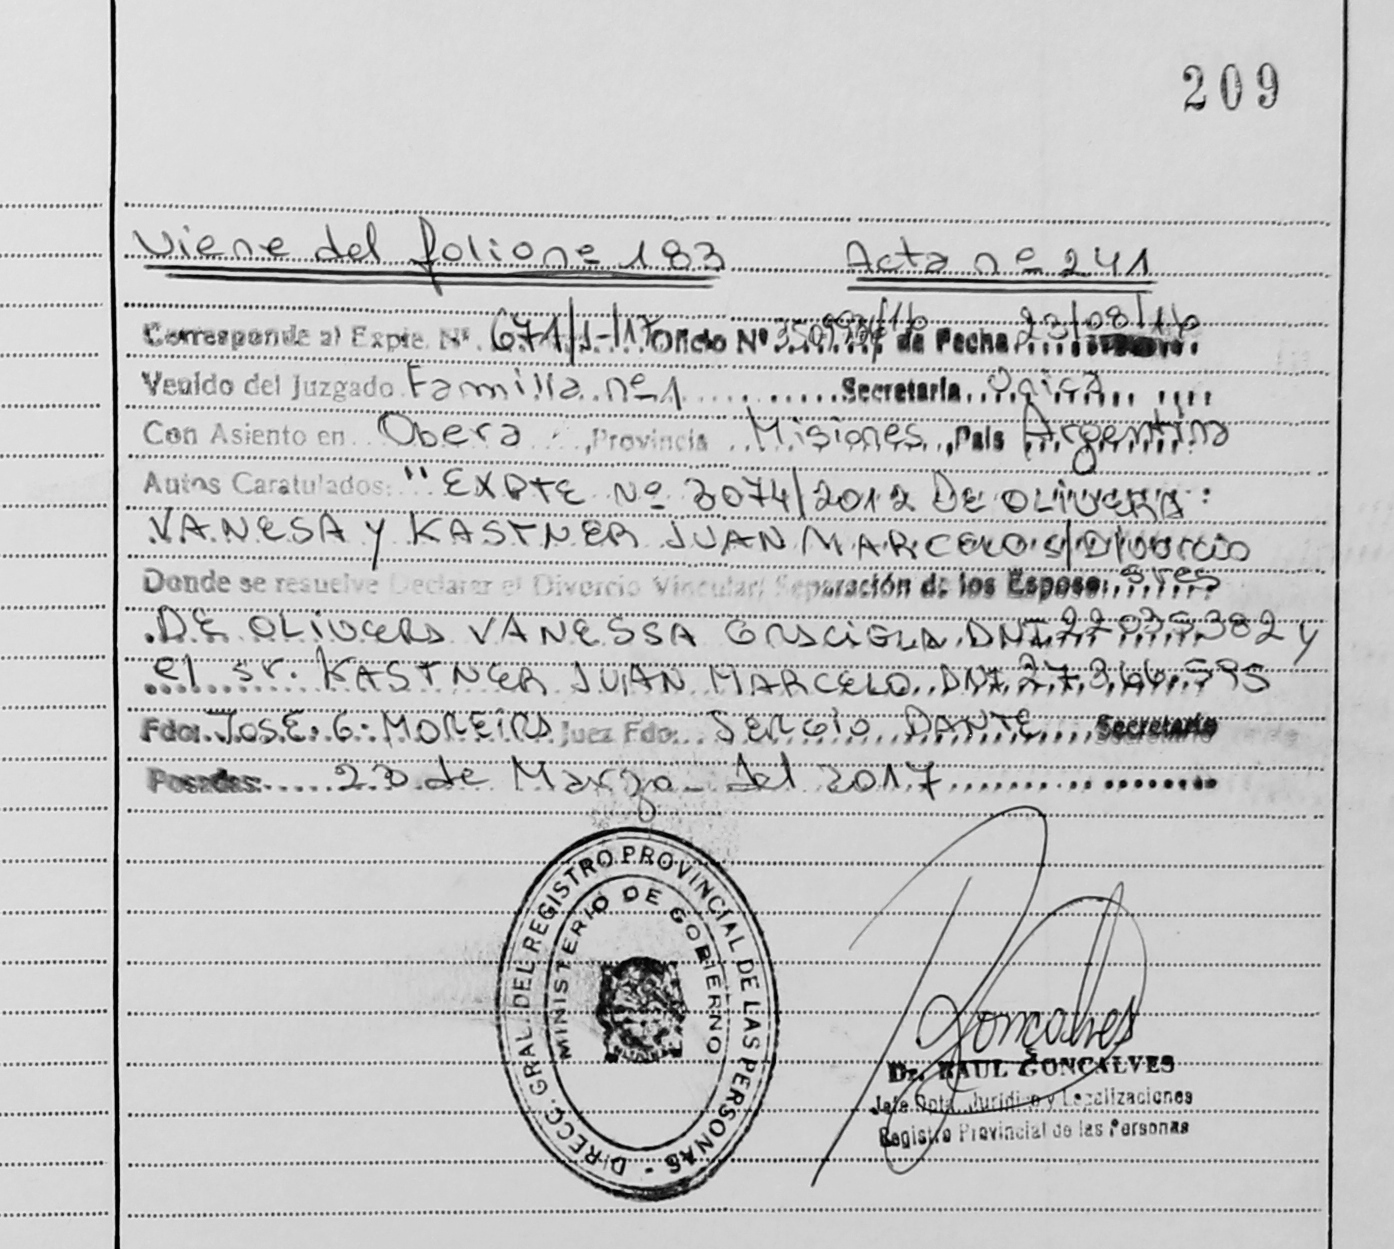 209
Viene del folio nº 183 Acta nº 241
Corresponde al Expte. Nº 671/J-/17 Oficio Nº de Fecha 23/08/16
Venido del Juzgado Familia nº 1 Secretaria Unica
Con Asiento en Obera, Provincia Misiones, País Argentina
Autos Caratulados: "EXPTE Nº 3074/2012 DE OLIVERA
VANESA Y KASTNER JUAN MARCELO S/Divorcio
Donde se resuelve Declarar el Divorcio Vincular/ Separación de los Esposo: Sres
DE OLIVERA VANESSA GRACIELA DNI y
el sr. KASTNER JUAN MARCELO DNI
Fdo: JOSE. G. MOREIRA Juez Fdo: SERGIO DANTE Secretario
Posadas: 23 de Marzo del 2017
DIRECC. GRAL. DEL REGISTRO PROVINCIAL DE LAS PERSONAS -
MINISTERIO DE GOBIERNO
Gonçalves
Dr. RAUL GONCALVES
Jefe Dpto. Juridico y Legalizaciones
Registro Provincial de las Personas